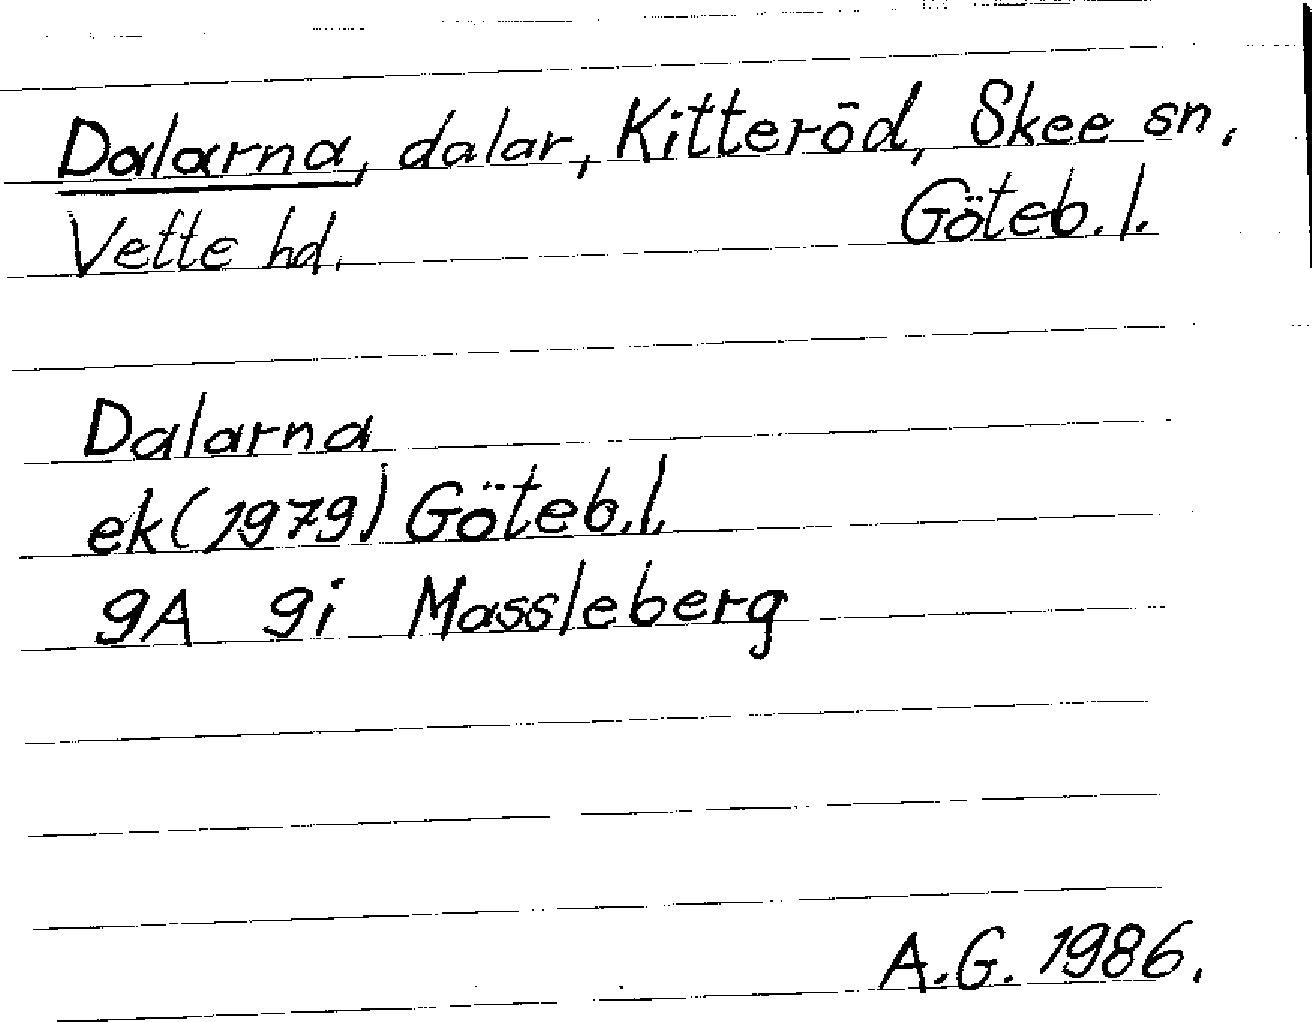 Dalarna, dalar, Kitteröd, Skee sn.
Vette hd. Göteb. l.
Dalarna
ek (1979) Göteb. l.
9A 9i Massleberg
A.G. 1986.